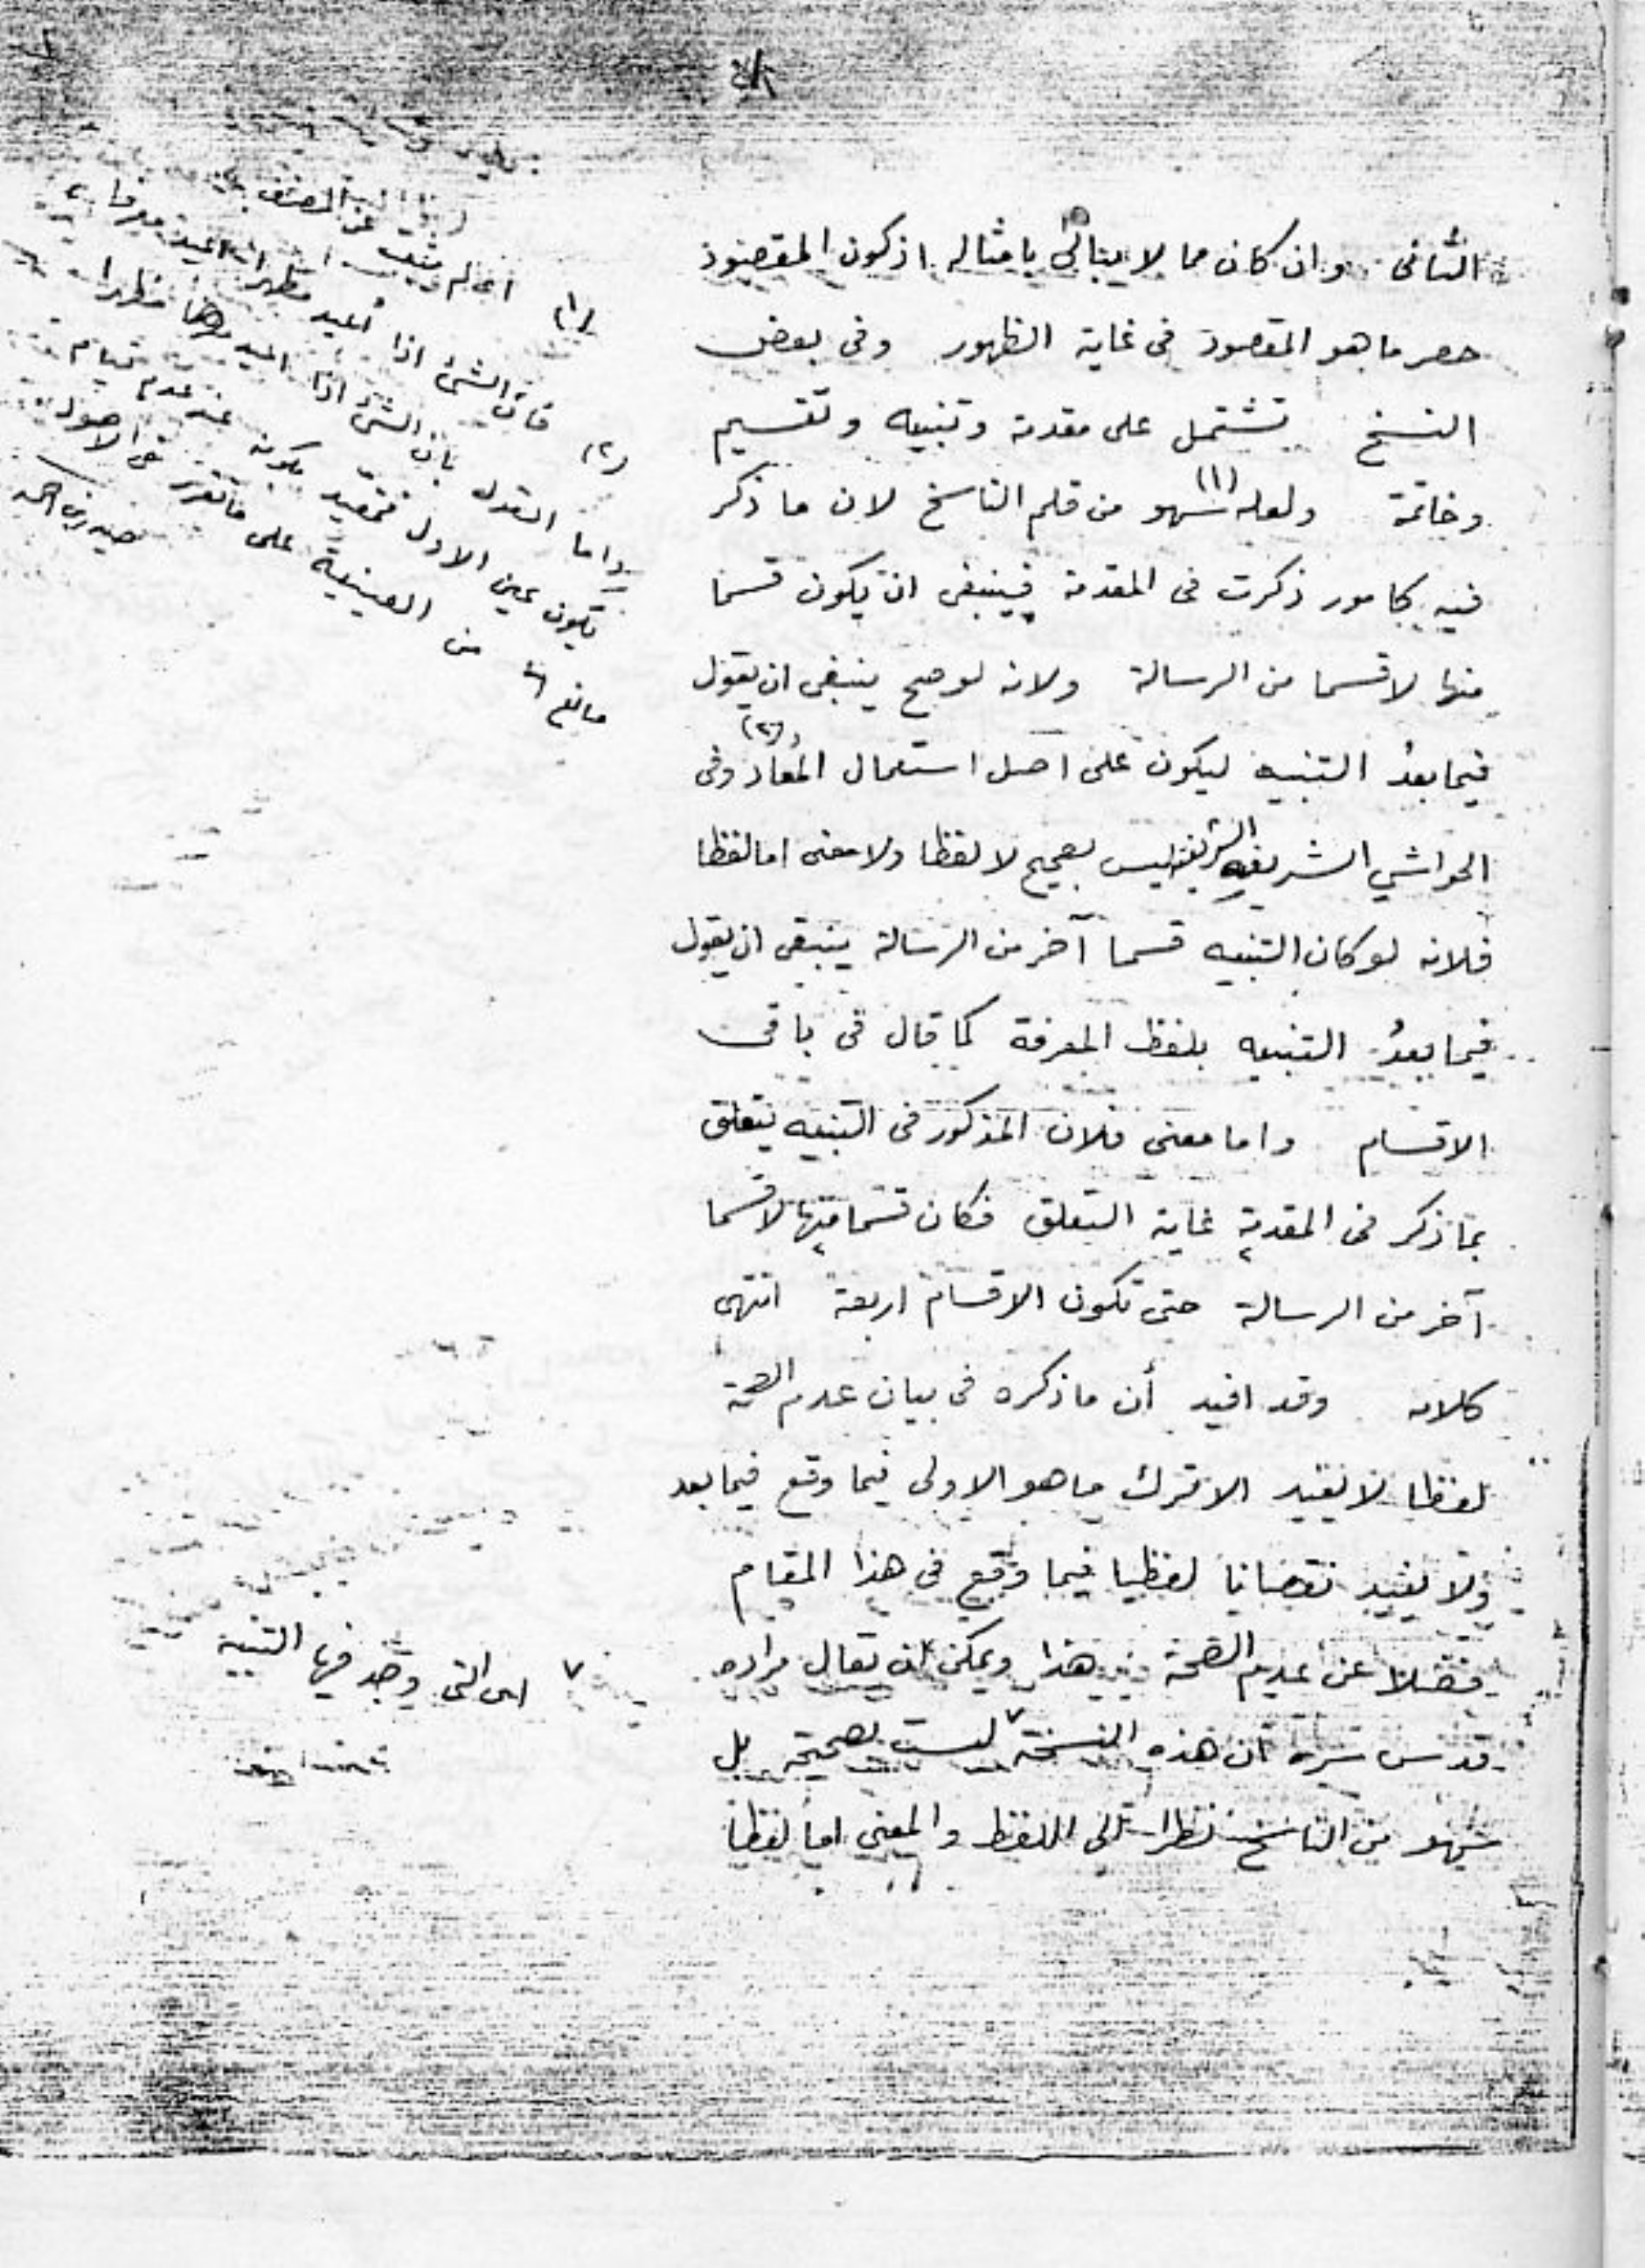 الثانى وان كان مما لا يبالى بامثاله اذ كون المقصود
حصر ما هو المقصود فى غاية الظهور وفى بعض
النسخ تشتمل على مقدمة وتنبيه وتقسيم
وخاتمة ولعله (١) سهو من قلم الناسخ لان ما ذكر
فيه كامور ذكرت فى المقدمة فينبغى ان يكون قسما
منها لا قسما من الرسالة ولانه لو صح ينبغى ان يقول
فيما بعدُ التنبيه ليكون على اصل استعمال المُعاد (٢) وفى
الحواشي الشريفه الشريفية ليس بصحيح لا لفظا ولا معنى اما لفظا
فلانه لو كان التنبيه قسما آخر من الرسالة ينبغى ان يقول
فيما بعدُ التنبيه بلفظ المعرفة كما قال فى باقى
الاقسام واما معنى فلان المذكور فى التنبيه يتعلق
بما ذكر فى المقدمة غاية التعلق فكان قسما منها لا قسما
آخر من الرسالة حتى تكون الاقسام اربعة انتهى
كلامه وقد افيد أن ما ذكره فى بيان عدم الصحة
لفظا لا يفيد الا ترك ما هو الاولى فيما وقع فيما بعد
ولا يفيد نقصانا لفظيا فيما وقع فى هذا المقام
فضلا عن عدم الصحة هذا ويمكن ان يقال مراده
قدس سره ان هذه النسخة ٧ ليست بصحيحة بل
سهو من الناسخ نظرا الى اللفظ والمعنى اما لفظا
(١) اى لم يثبت عن المصنف
(٢) فان الشئ اذا أعيد مظهرا
واما القول بان الشئ اذا اعيد معرفا مظهرا
يكون عين الاول فمقيد بكونه عند عدم قيام
مانع من العينية على ما تقرر فى الاصول
٧ اى التى وجد فيها التنبيه